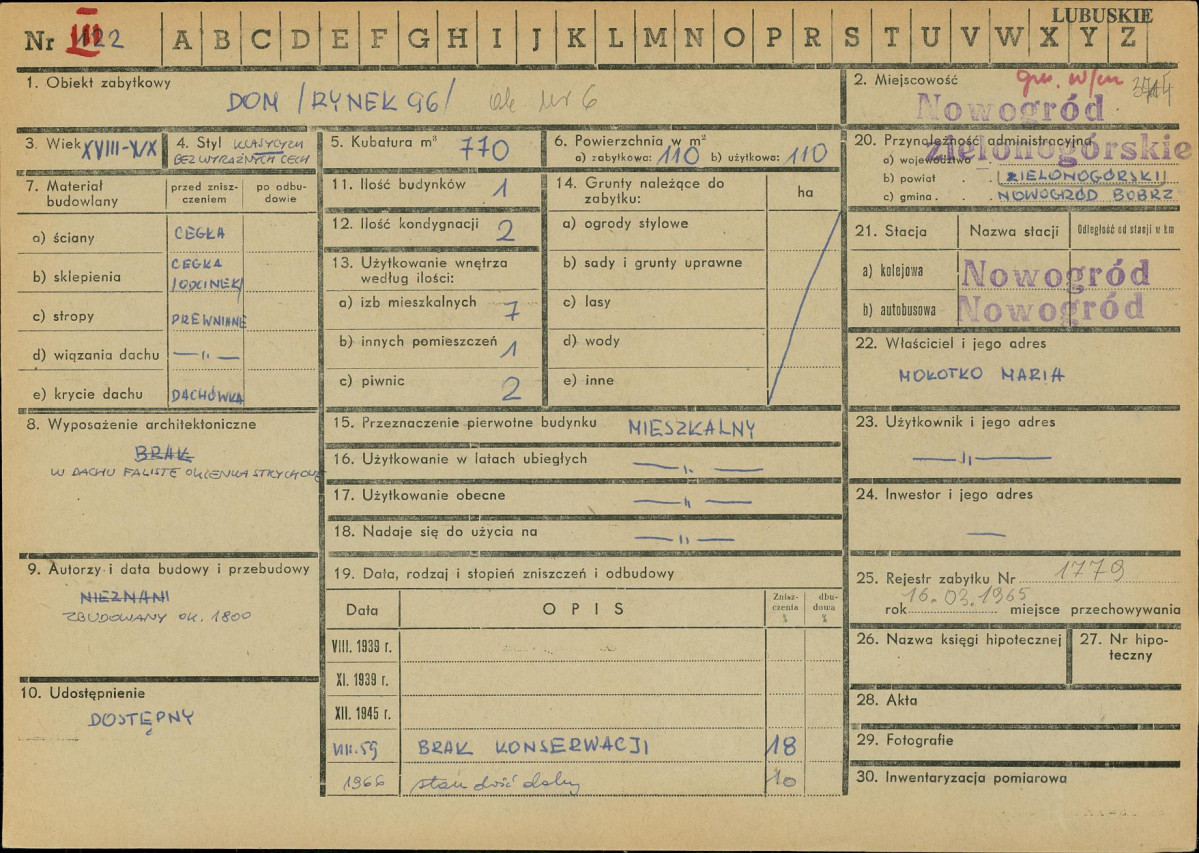 LUBUSKIE
Nr 122 A B C D E F G H I J K L M N O P R S T U V W X Y Z
III
1. Obiekt zabytkowy
DOM /RYNEK 96/ ob nr 6
2. Miejscowość
Nowogród
3. Wiek XVIII-XIX
4. Styl KLASYCYZM
BEZ WYRAŹNYCH CECH
5. Kubatura m³ 770
6. Powierzchnia w m²
a) zabytkowa: 110 b) użytkowa: 110
20. Przynależność administracyjna
a) województwo zielonogórskie
b) powiat ZIELONOGÓRSKI
c) gmina NOWOGRÓD BOBRZ
7. Materiał budowlany
przed zniszczeniem
po odbudowie
a) ściany CEGŁA
b) sklepienia CEGŁA
/ODCINEK/
c) stropy DREWNIANE
d) wiązania dachu —„—
e) krycie dachu DACHÓWKA
11. Ilość budynków 1
12. Ilość kondygnacji 2
13. Użytkowanie wnętrza
według ilości:
a) izb mieszkalnych 7
b) innych pomieszczeń 1
c) piwnic 2
14. Grunty należące do
zabytku:
ha
a) ogrody stylowe
b) sady i grunty uprawne
c) lasy
d) wody
e) inne
21. Stacja
Nazwa stacji
Odległość od stacji w km
a) kolejowa Nowogród
b) autobusowa Nowogród
22. Właściciel i jego adres
MOŁOTKO MARIA
8. Wyposażenie architektoniczne
BRAK
W DACHU FALISTE OKIENKA STRYCHOWE
15. Przeznaczenie pierwotne budynku MIESZKALNY
16. Użytkowanie w latach ubiegłych —„—
17. Użytkowanie obecne —„—
18. Nadaje się do użycia na —„—
23. Użytkownik i jego adres
—„—
24. Inwestor i jego adres
—
9. Autorzy i data budowy i przebudowy
NIEZNANI
ZBUDOWANY OK. 1800
10. Udostępnienie
DOSTĘPNY
19. Data, rodzaj i stopień zniszczeń i odbudowy
Data
OPIS
Zniszczenia %
dbudowa %
VIII. 1939 r.
XI. 1939 r.
XII. 1945 r.
VIII.59 BRAK KONSERWACJI 18
1966 stan dość dobry 10
25. Rejestr zabytku Nr 1779
16.03.1965
rok miejsce przechowywania
26. Nazwa księgi hipotecznej
27. Nr hipo-
teczny
28. Akta
29. Fotografie
30. Inwentaryzacja pomiarowa